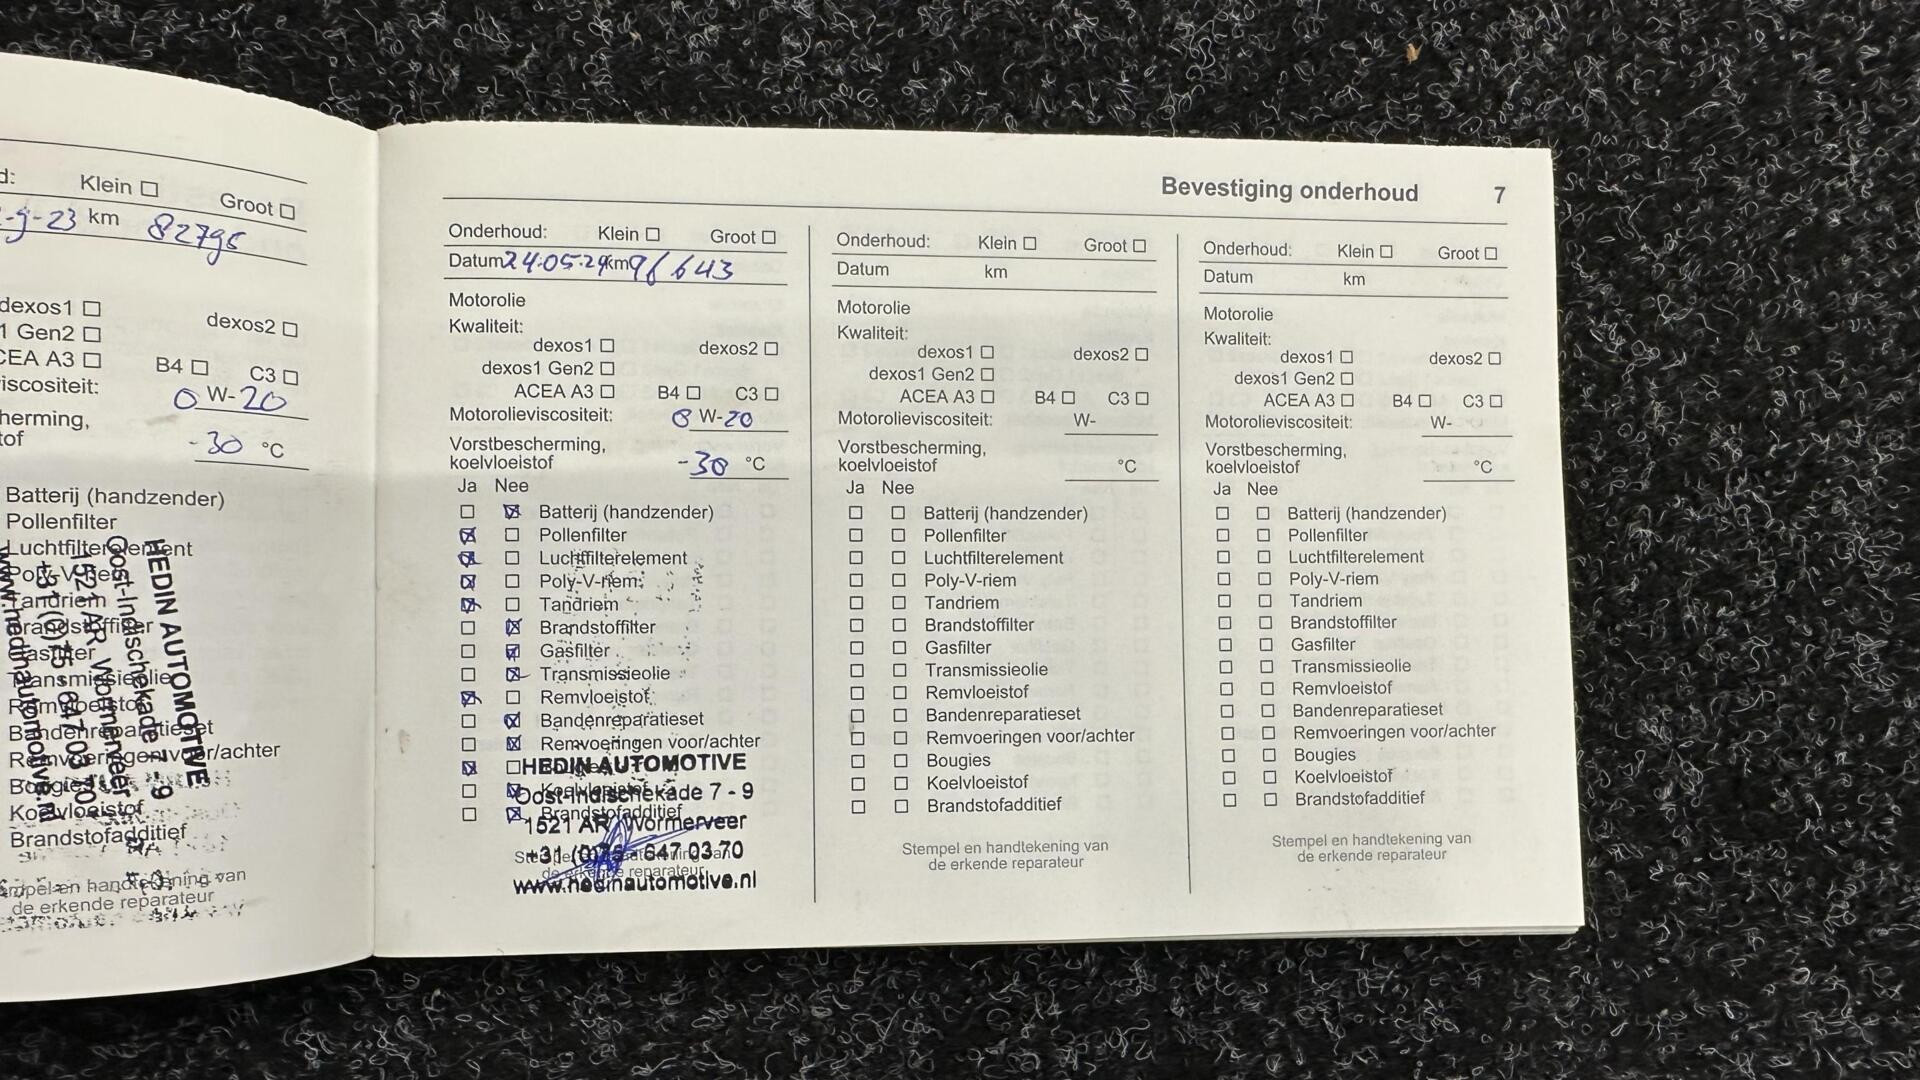 d: Klein Groot
-9-23 km 82795
dexos1 dexos2
1 Gen2
CEA A3 B4 C3
viscositeit: 0 W-20
herming,
tof -30 °C
Batterij (handzender)
Pollenfilter
Luchtfilterelement
Poly-V-riem
Tandriem
Brandstoffilter
Gasfilter
Transmissieolie
Remvloeistof
Bandenreparatieset
Remvoeringen voor/achter
Bougies
Koelvloeistof
Brandstofadditief
HEDIN AUTOMOTIVE
Oost-Indischekade 7 - 9
1521 AR Wormerveer
+31 (0)75 - 647 03 70
www.hedinautomotive.nl
empel en handtekening van
de erkende reparateur
Bevestiging onderhoud 7
Onderhoud: Klein Groot
Datum 24-05-24 km 96 643
Motorolie
Kwaliteit:
dexos1 dexos2
dexos1 Gen2
ACEA A3 B4 C3
Motorolieviscositeit: 0 W-20
Vorstbescherming,
koelvloeistof -30 °C
Ja Nee
Batterij (handzender)
Pollenfilter
Luchtfilterelement
Poly-V-riem
Tandriem
Brandstoffilter
Gasfilter
Transmissieolie
Remvloeistof
Bandenreparatieset
Remvoeringen voor/achter
Bougies
Koelvloeistof
Brandstofadditief
HEDIN AUTOMOTIVE
Oost-Indischekade 7 - 9
1521 AR Wormerveer
+31 (0)75 - 647 03 70
www.hedinautomotive.nl
Stempel en handtekening van
de erkende reparateur
Onderhoud: Klein Groot
Datum km
Motorolie
Kwaliteit:
dexos1 dexos2
dexos1 Gen2
ACEA A3 B4 C3
Motorolieviscositeit: W-
Vorstbescherming,
koelvloeistof °C
Ja Nee
Batterij (handzender)
Pollenfilter
Luchtfilterelement
Poly-V-riem
Tandriem
Brandstoffilter
Gasfilter
Transmissieolie
Remvloeistof
Bandenreparatieset
Remvoeringen voor/achter
Bougies
Koelvloeistof
Brandstofadditief
Stempel en handtekening van
de erkende reparateur
Onderhoud: Klein Groot
Datum km
Motorolie
Kwaliteit:
dexos1 dexos2
dexos1 Gen2
ACEA A3 B4 C3
Motorolieviscositeit: W-
Vorstbescherming,
koelvloeistof °C
Ja Nee
Batterij (handzender)
Pollenfilter
Luchtfilterelement
Poly-V-riem
Tandriem
Brandstoffilter
Gasfilter
Transmissieolie
Remvloeistof
Bandenreparatieset
Remvoeringen voor/achter
Bougies
Koelvloeistof
Brandstofadditief
Stempel en handtekening van
de erkende reparateur